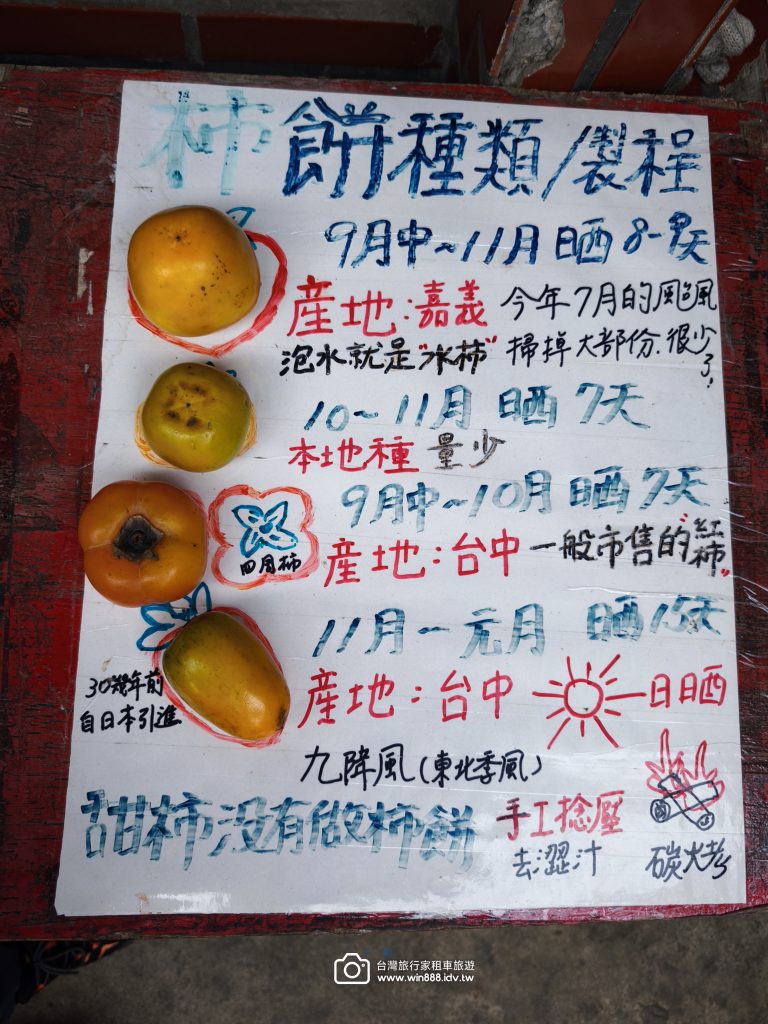 柿餅種類/製程
9月中~11月 晒 8-9天
産地:嘉義 今年7月的颱風
泡水就是"水柿" 掃掉大部份.很少了!
10~11月 晒 7天
本地種 量少
9月中~10月 晒 7天
四周柿
産地:台中 一般市售的"紅柿"
11月-元月 晒 15天
30幾年前
自日本引進
産地:台中 日晒
九降風(東北季風)
甜柿没有做柿餅
手工捻壓
去澀汁
碳火烤
台灣旅行家租車旅遊
www.win888.idv.tw